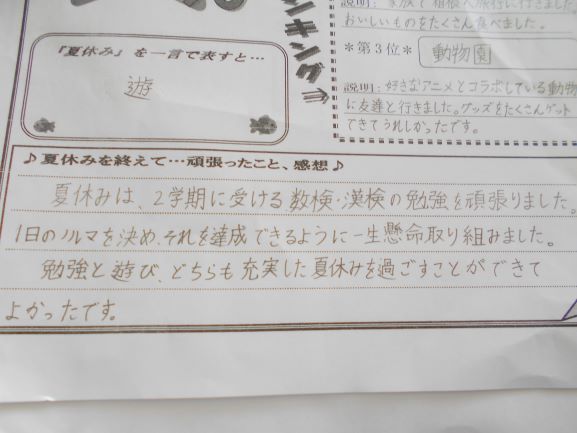 説明:家族で箱根へ旅行に行きました
おいしいものをたくさん食べました。
ンキング⇒
*第3位*
動物園
説明:好きなアニメとコラボしている動物
に友達と行きました。グッズをたくさんゲット
できてうれしかったです。
『夏休み』を一言で表すと…
遊
♪夏休みを終えて…頑張ったこと、感想♪
夏休みは、2学期に受ける数検・漢検の勉強を頑張りました。
1日のノルマを決め、それを達成できるように一生懸命取り組みました。
勉強と遊び、どちらも充実した夏休みを過ごすことができて
よかったです。